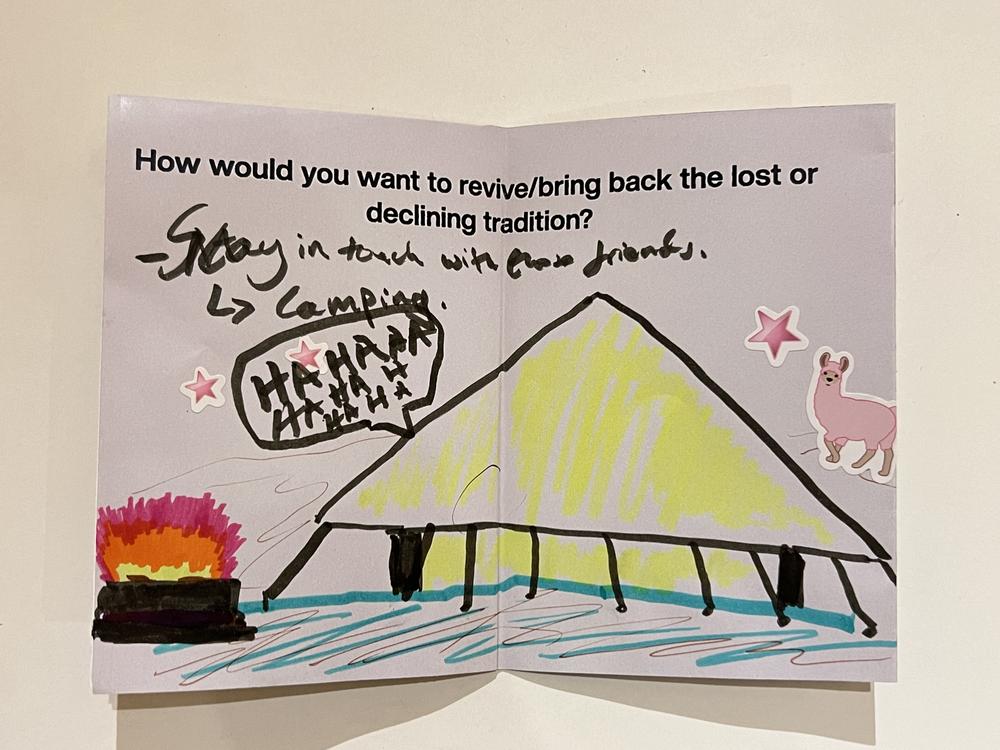 How would you want to revive/bring back the lost or
declining tradition?
- Stay in touch with those friends.
↳ Camping.
HAHAAA
HAHAH
HAHA